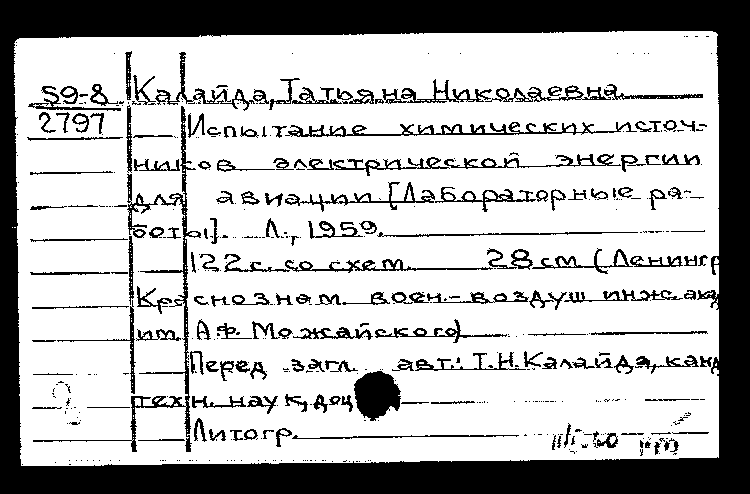 59-8 Калайда, Татьяна Николаевна.
2797 Испытание химических источ-
ников электрической энергии
для авиации [Лабораторные ра-
боты]. Л., 1959.
122 с. со схем. 28 см (Ленингр
Краснознам. воен.-воздуш инж. ака
им. А.Ф. Можайского)
Перед загл. авт.: Т.Н. Калайда, канд
техн. наук, доц
Литогр.